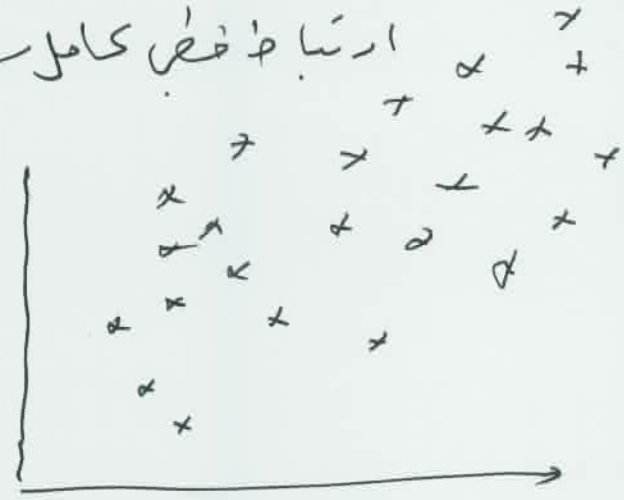 ارتباط خطي كامل